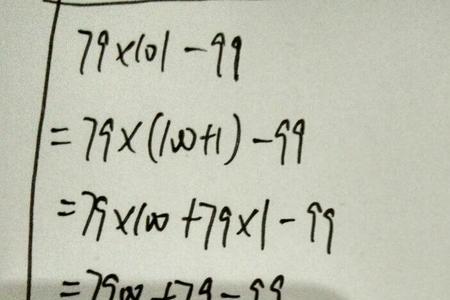 79×101-99
=79×(100+1)-99
=79×100+79×1-99
=7900+79-99